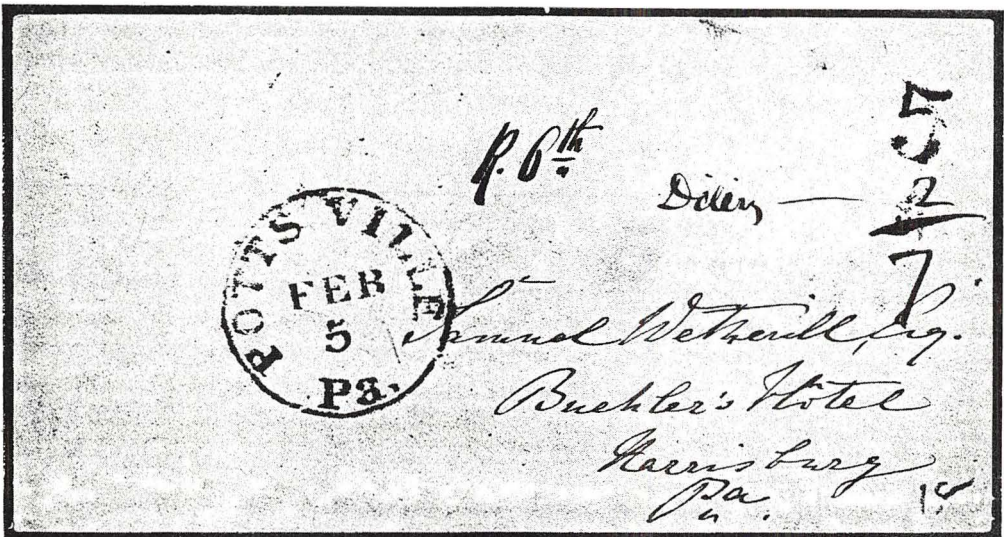 R. 6th
5
2
7
POTTSVILLE
FEB
5
Pa.
Samuel Wetherill, Esq.
Buehler's Hotel
Harrisburg
Pa.